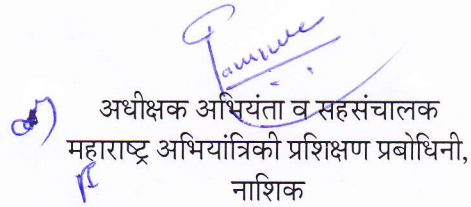 अधीक्षक अभियंता व सहसंचालक
महाराष्ट्र अभियांत्रिकी प्रशिक्षण प्रबोधिनी,
नाशिक